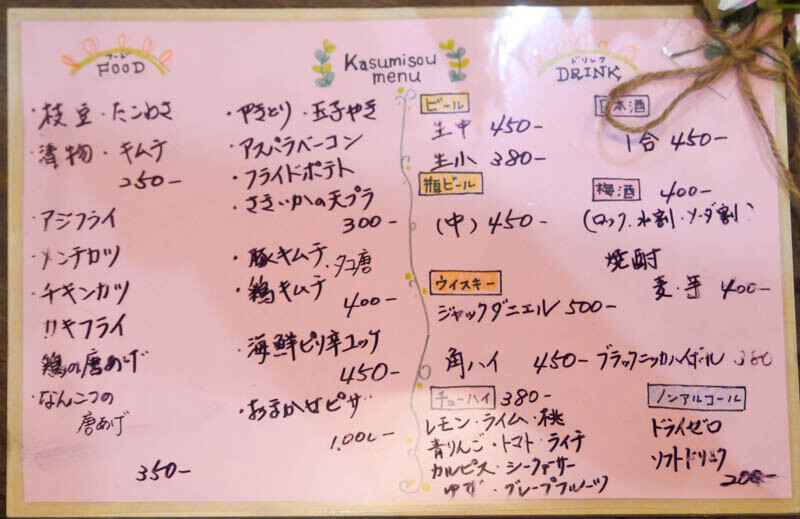 フード
FOOD
・枝豆・たこわさ
・漬物・キムチ
250-
・アジフライ
・メンチカツ
・チキンカツ
・カキフライ
・鶏の唐あげ
・なんこつの
唐あげ
350-
・やきとり・玉子やき
・アスパラベーコン
・フライドポテト
・さきいかの天プラ
300-
・豚キムチ・タコ唐
・鶏キムチ
400-
・海鮮ピリ辛ユッケ
450-
・おまかせピザ
1,000-
Kasumisou
menu
ドリンク
DRINK
ビール
生中 450-
生小 380-
瓶ビール
(中) 450-
ウイスキー
ジャックダニエル 500-
角ハイ 450- ブラックニッカハイボール 380
チューハイ 380-
レモン・ライム・桃
青りんご・トマト・ライチ
カルピス・シークァーサー
ゆず・グレープフルーツ
日本酒
1合 450-
梅酒 400-
(ロック・水割・ソーダ割)
焼酎
麦・芋 400-
ノンアルコール
ドライゼロ
ソフトドリンク
200-